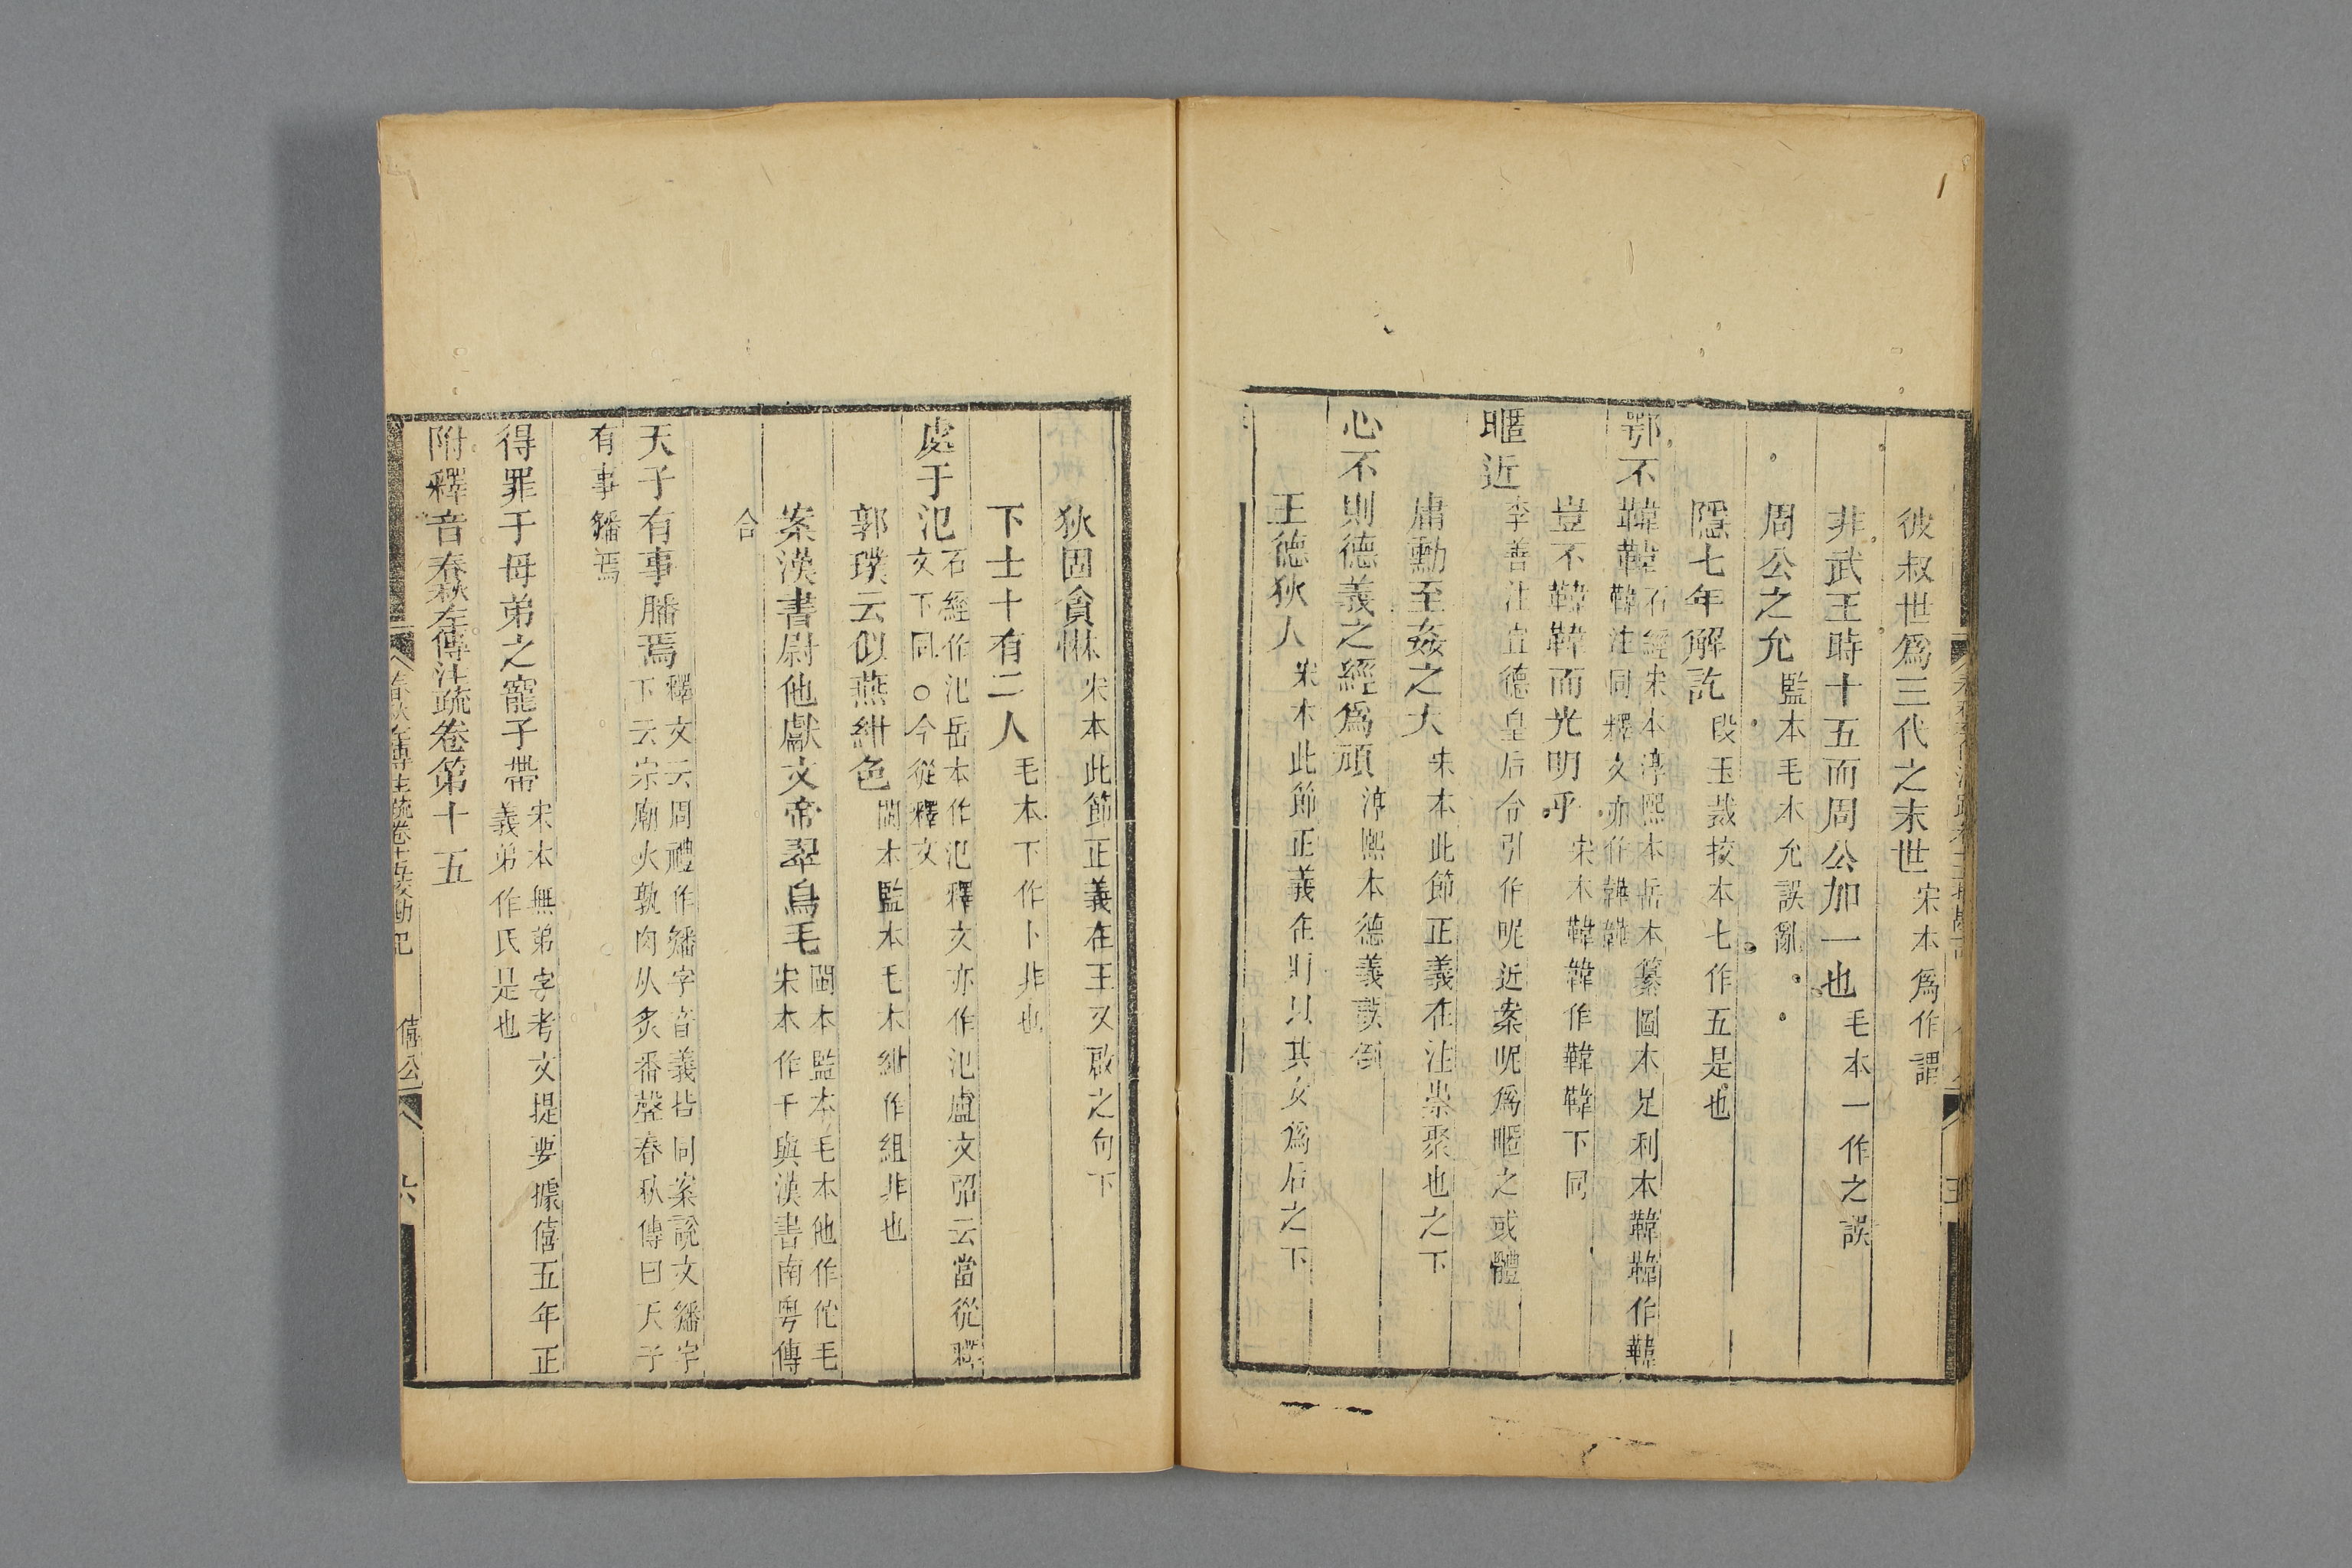 彼叔世爲三代之末世宋本爲作謂
非武王時十五而周公加一也毛本一作之誤
周公之允監本毛本允誤亂
隱七年解訖段玉裁挍本七作五是也
鄂不韡韡石經宋本淳熙本岳本纂圖本足利本韡韡作韡
韡注同釋文亦作韡韡
豈不韡韡而光明乎宋本韡韡作韡韡下同
暱近李善注宣德皇后令引作昵近案昵爲暱之或體
庸勳至姦之大宋本此節正義在注崇聚也之下
心不則德義之經爲頑淳熙本德義誤倒
王德狄人宋本此節正義在將以其女爲后之下
狄固貪惏宋本此節正義在王又啟之句下
下士十有二人毛本下作卜非也
處于氾石經作氾岳本作汜釋文亦作氾盧文弨云當從釋
文下同○今從釋文
郭璞云似燕紺色閩本監本毛本紺作組非也
案漢書尉他獻文帝翠鳥毛閩本監本毛本他作佗毛
宋本作千與漢書南粵傳
合
天子有事膰焉釋文云周禮作䉒字音義皆同案說文䉒字
下云宗廟火孰肉从炙番聲春秋傳曰天子
有事䉒焉
得罪于母弟之寵子帶宋本無弟字考文提要據僖五年正
義弟作氏是也
附釋音春秋左傳注疏卷第十五
春秋左傳注疏卷十五挍勘記 僖公 六